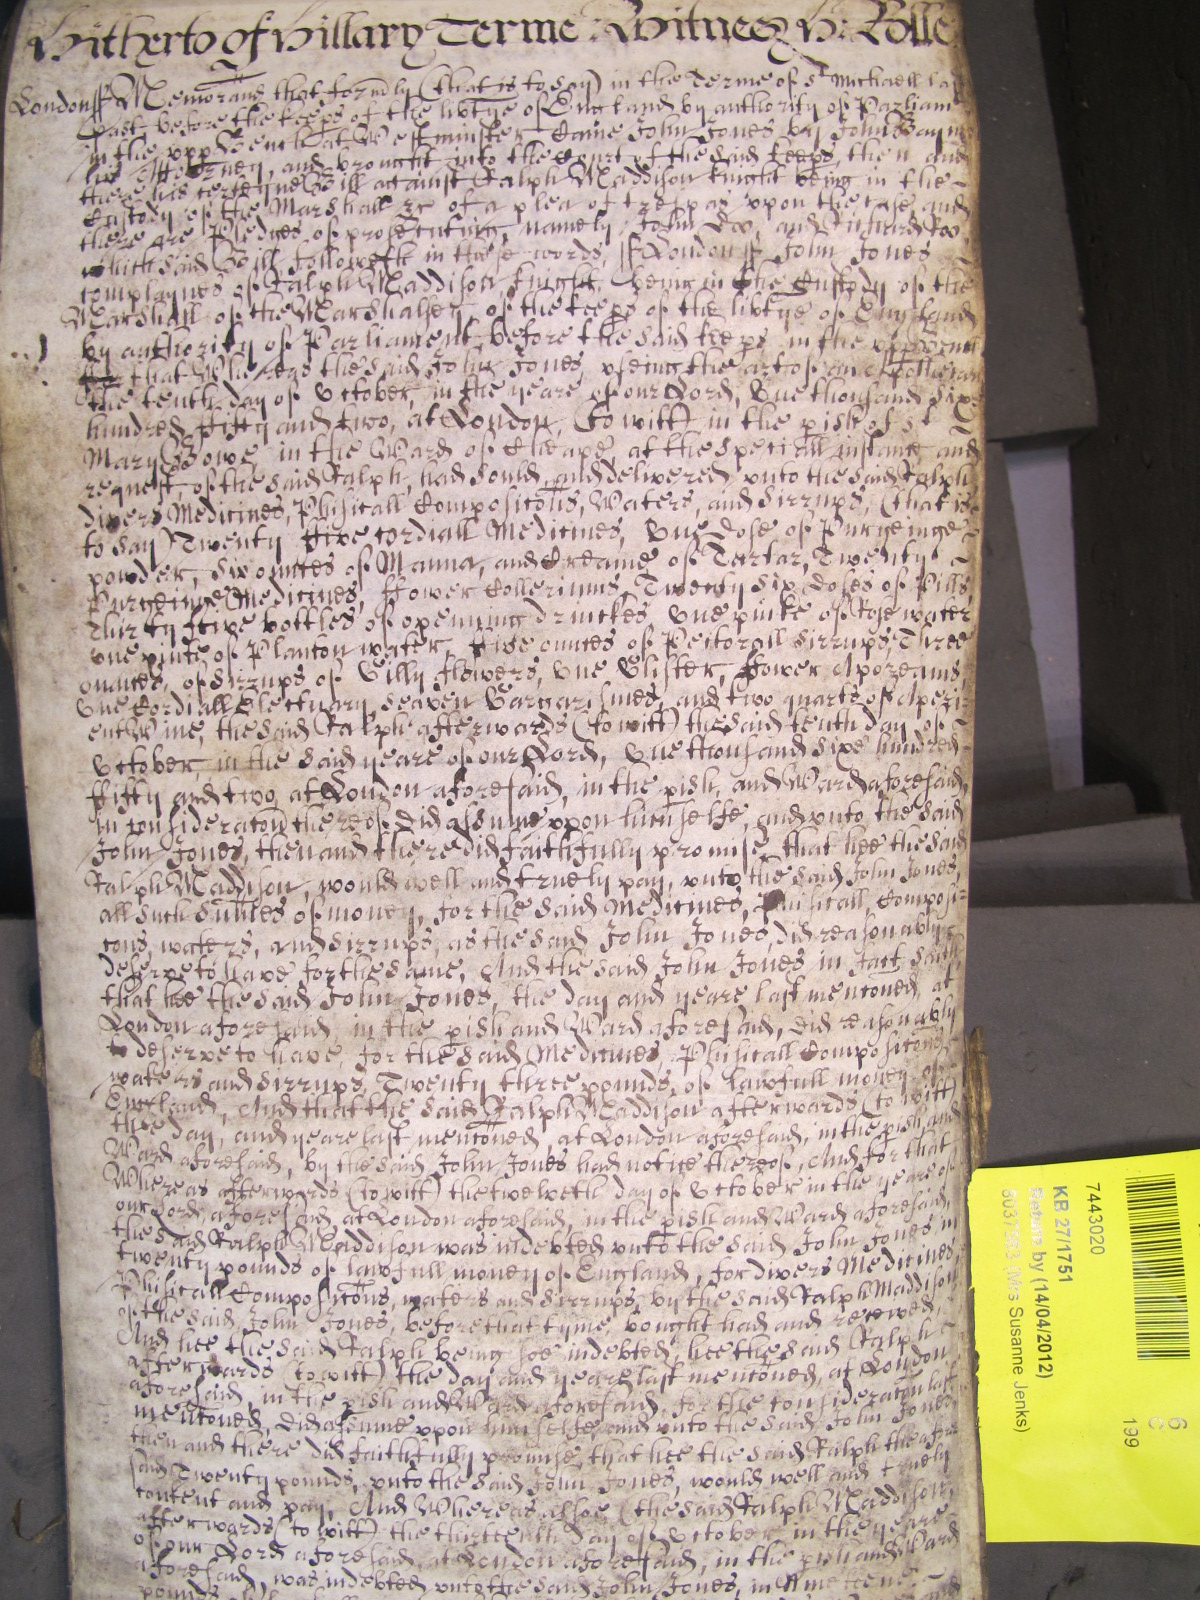 Hitherto of Hillary Terme : Witnes H: Rolle
London ss Memorand that formly (that is to say) in the Terme of St Michaell la
past before the keeps of the libtye of England by authority of Parliam
in the upp Bench at Westminster Came John Jones by John
his Attorney, and brought into the Court of the said keeps then and
there his certeyne Bill against Ralph Maddison knight being in the
Custody of the Marshall &c of a plea of trespas upon the case and
there are Pledges of prosecuting, namely John Doo, and Richard Roo
which said Bill followeth in these words, ss London ss John Jones
complaynes of Ralph Maddison knight, being in the Custody of the
Marshall of the Marshalsey, of the keeps of the libtye of England
by authority of Parliament, before the said keeps in the upp
for that Whereas the said John Jones, useing the art of an
the tenth day of October, in the yeare of our Lord, One thousand Sixe
hundred fifty and two, at London, (to witt) in the pish of St
Mary Bowe in the Ward of Cheape, at the speciall instance and
request, of the said Ralph, had sould, and delivered unto the said Ralph
divers Medicines, Phisicall Compositons, Waters, and Sirrups, (that is
to say) Twenty five cordiall Medicines, One dose of Purgeinge
powder, six ounces of Manna, and Creame of Tartar, Twenty
Purgeinge Medicines, ffower Colleriums, Twenty six doses of Pills,
Thirty five bottles of opening drinckes One pinte of Rose water
one pinte of Planton water, ffive ounces of Pectorall Sirrups, Three
ounces, of Sirrups of Gilly flowers, One Glister, ffower Apozeams,
One Cordiall Electuary, seaven Gargarismes, and two quarts of Aperi
ent Wine, the said Ralph afterwards (to witt) the said tenth day of
October, in the said yeare of our Lord, One thousand sixe hundred
fifty and two, at London aforesaid, in the pish, and Ward aforesaid,
in consideraton thereof did assume upon himselfe, and unto the said
John Jones, then and there did faithfully promise, that hee the said
Ralph Maddison, would well and truely pay, unto the said John Jones,
all such sumes of money, for the said Medicines, Phisicall, Composi=
cons, waters, and sirrups, as the said John Jones, did reasonably
deserve to have for the same, And the said John Jones in fact saith
that hee the said John Jones, the day and yeare last mentoned, at
London aforesaid, in the pish and Ward aforesaid, did reasonably
to deserve to have, for the said Medicines, Phisicall Compositons
waters and sirrups, Twenty three pounds, of lawfull money of
England, And that the said Ralph Maddison afterwards (to witt)
the day, and yeare last mentoned, at London aforesaid, in the pish, and
Ward aforesaid, by the said John Jones had notice thereof, And for that
Whereas afterwards (to witt) the twelveth day of October in the yeare of
our Lord, aforesaid, at London aforesaid, in the pish and Ward aforesaid,
the said Ralph Maddison was indebted unto the said John Jones in
twenty pounds of lawfull money of England, for divers Medicines
Phisicall Compositons, waters and sirrups, by the said Ralph Maddison
of the said John Jones, before that tyme, bought had and received,
And hee the said Ralph being soe indebted, hee the said Ralph
afterwards (to witt) the day and yeare last mentoned, at London
aforesaid, in the pish and Ward aforesaid, for the consideraton last
mentoned, did assume upon himselfe, and unto the said John Jones,
then and there did faithfully promise, that hee the said Ralph the afore
said Twenty pounds, unto the said John Jones, would well and truely
content and pay, And Whereas alsoe (the said Ralph Maddison,
afterwards (to witt) the thirteenth day of October in the yeare
of our Lord aforesaid, at London aforesaid, in the pish and Ward
aforesaid, was indebted unto the said John Jones, in
pounds of
7443020
KB 27/1751
Return by (14/04/2012)
(Mrs Susanne Jenks)
199